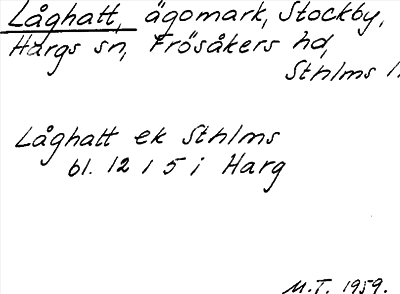 Låghatt, ägomark, Stockby,
Hargs sn, Frösåkers hd,
Sthlms l.
Låghatt ek Sthlms
bl. 12 1 5 i Harg
M.T. 1959.